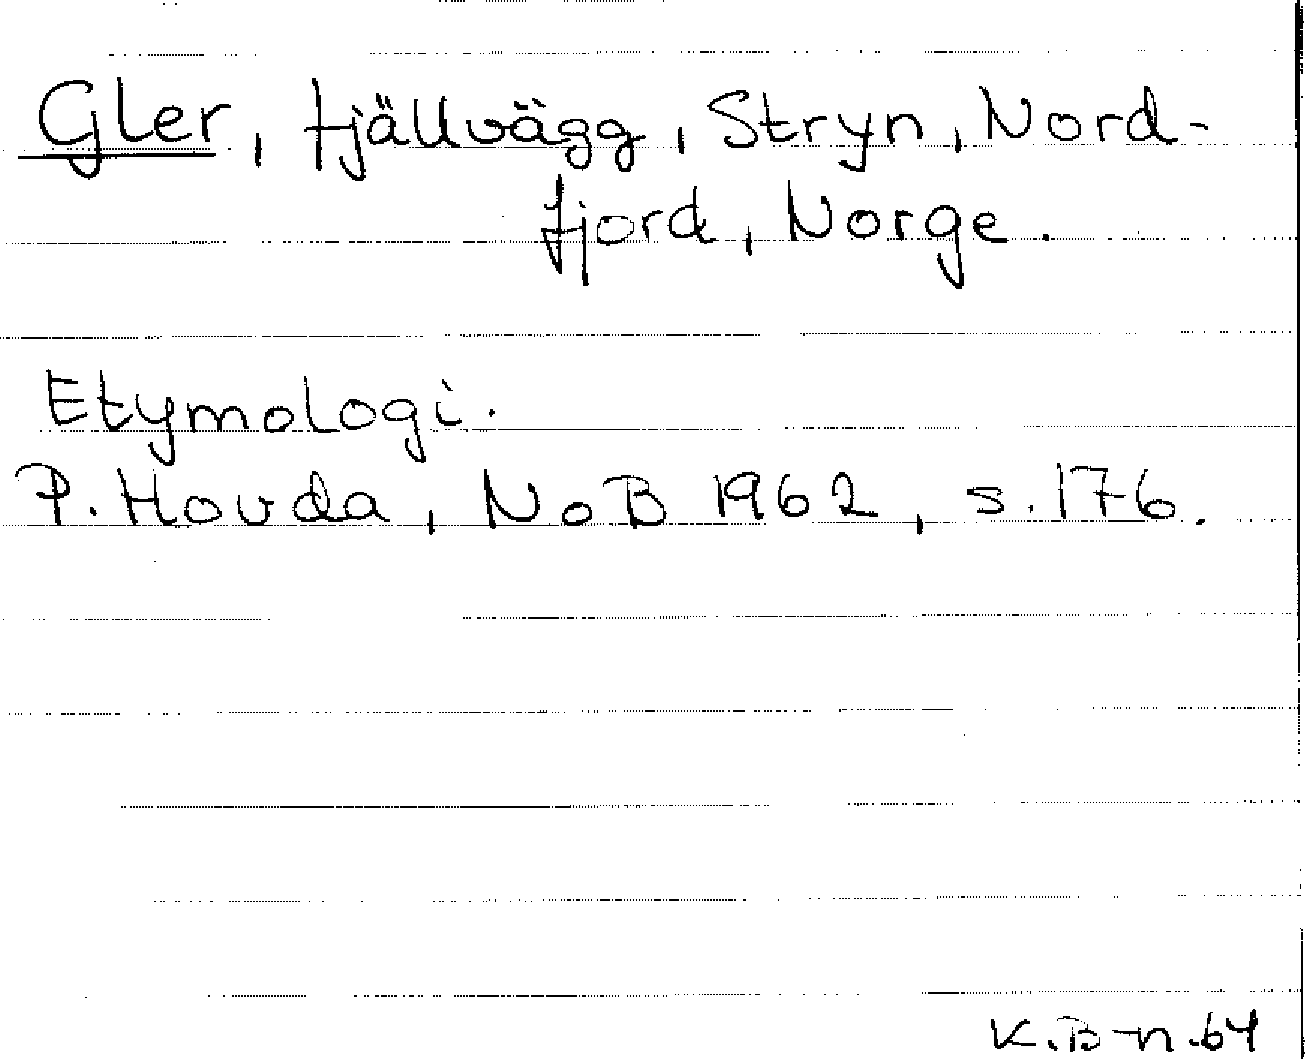 Gler, fjällvägg, Stryn, Nord-
fjord, Norge.
Etymologi.
P. Hovda, NoB 1962, s. 176.
K.B-n.64